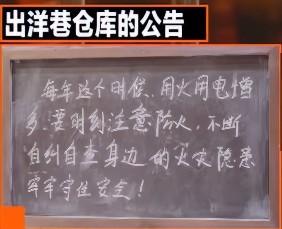 出洋巷仓库的公告
每年这个时候、用火用电增
多、要时刻注意防火，不断
自纠自查身边的火灾隐患
牢牢守住安全！